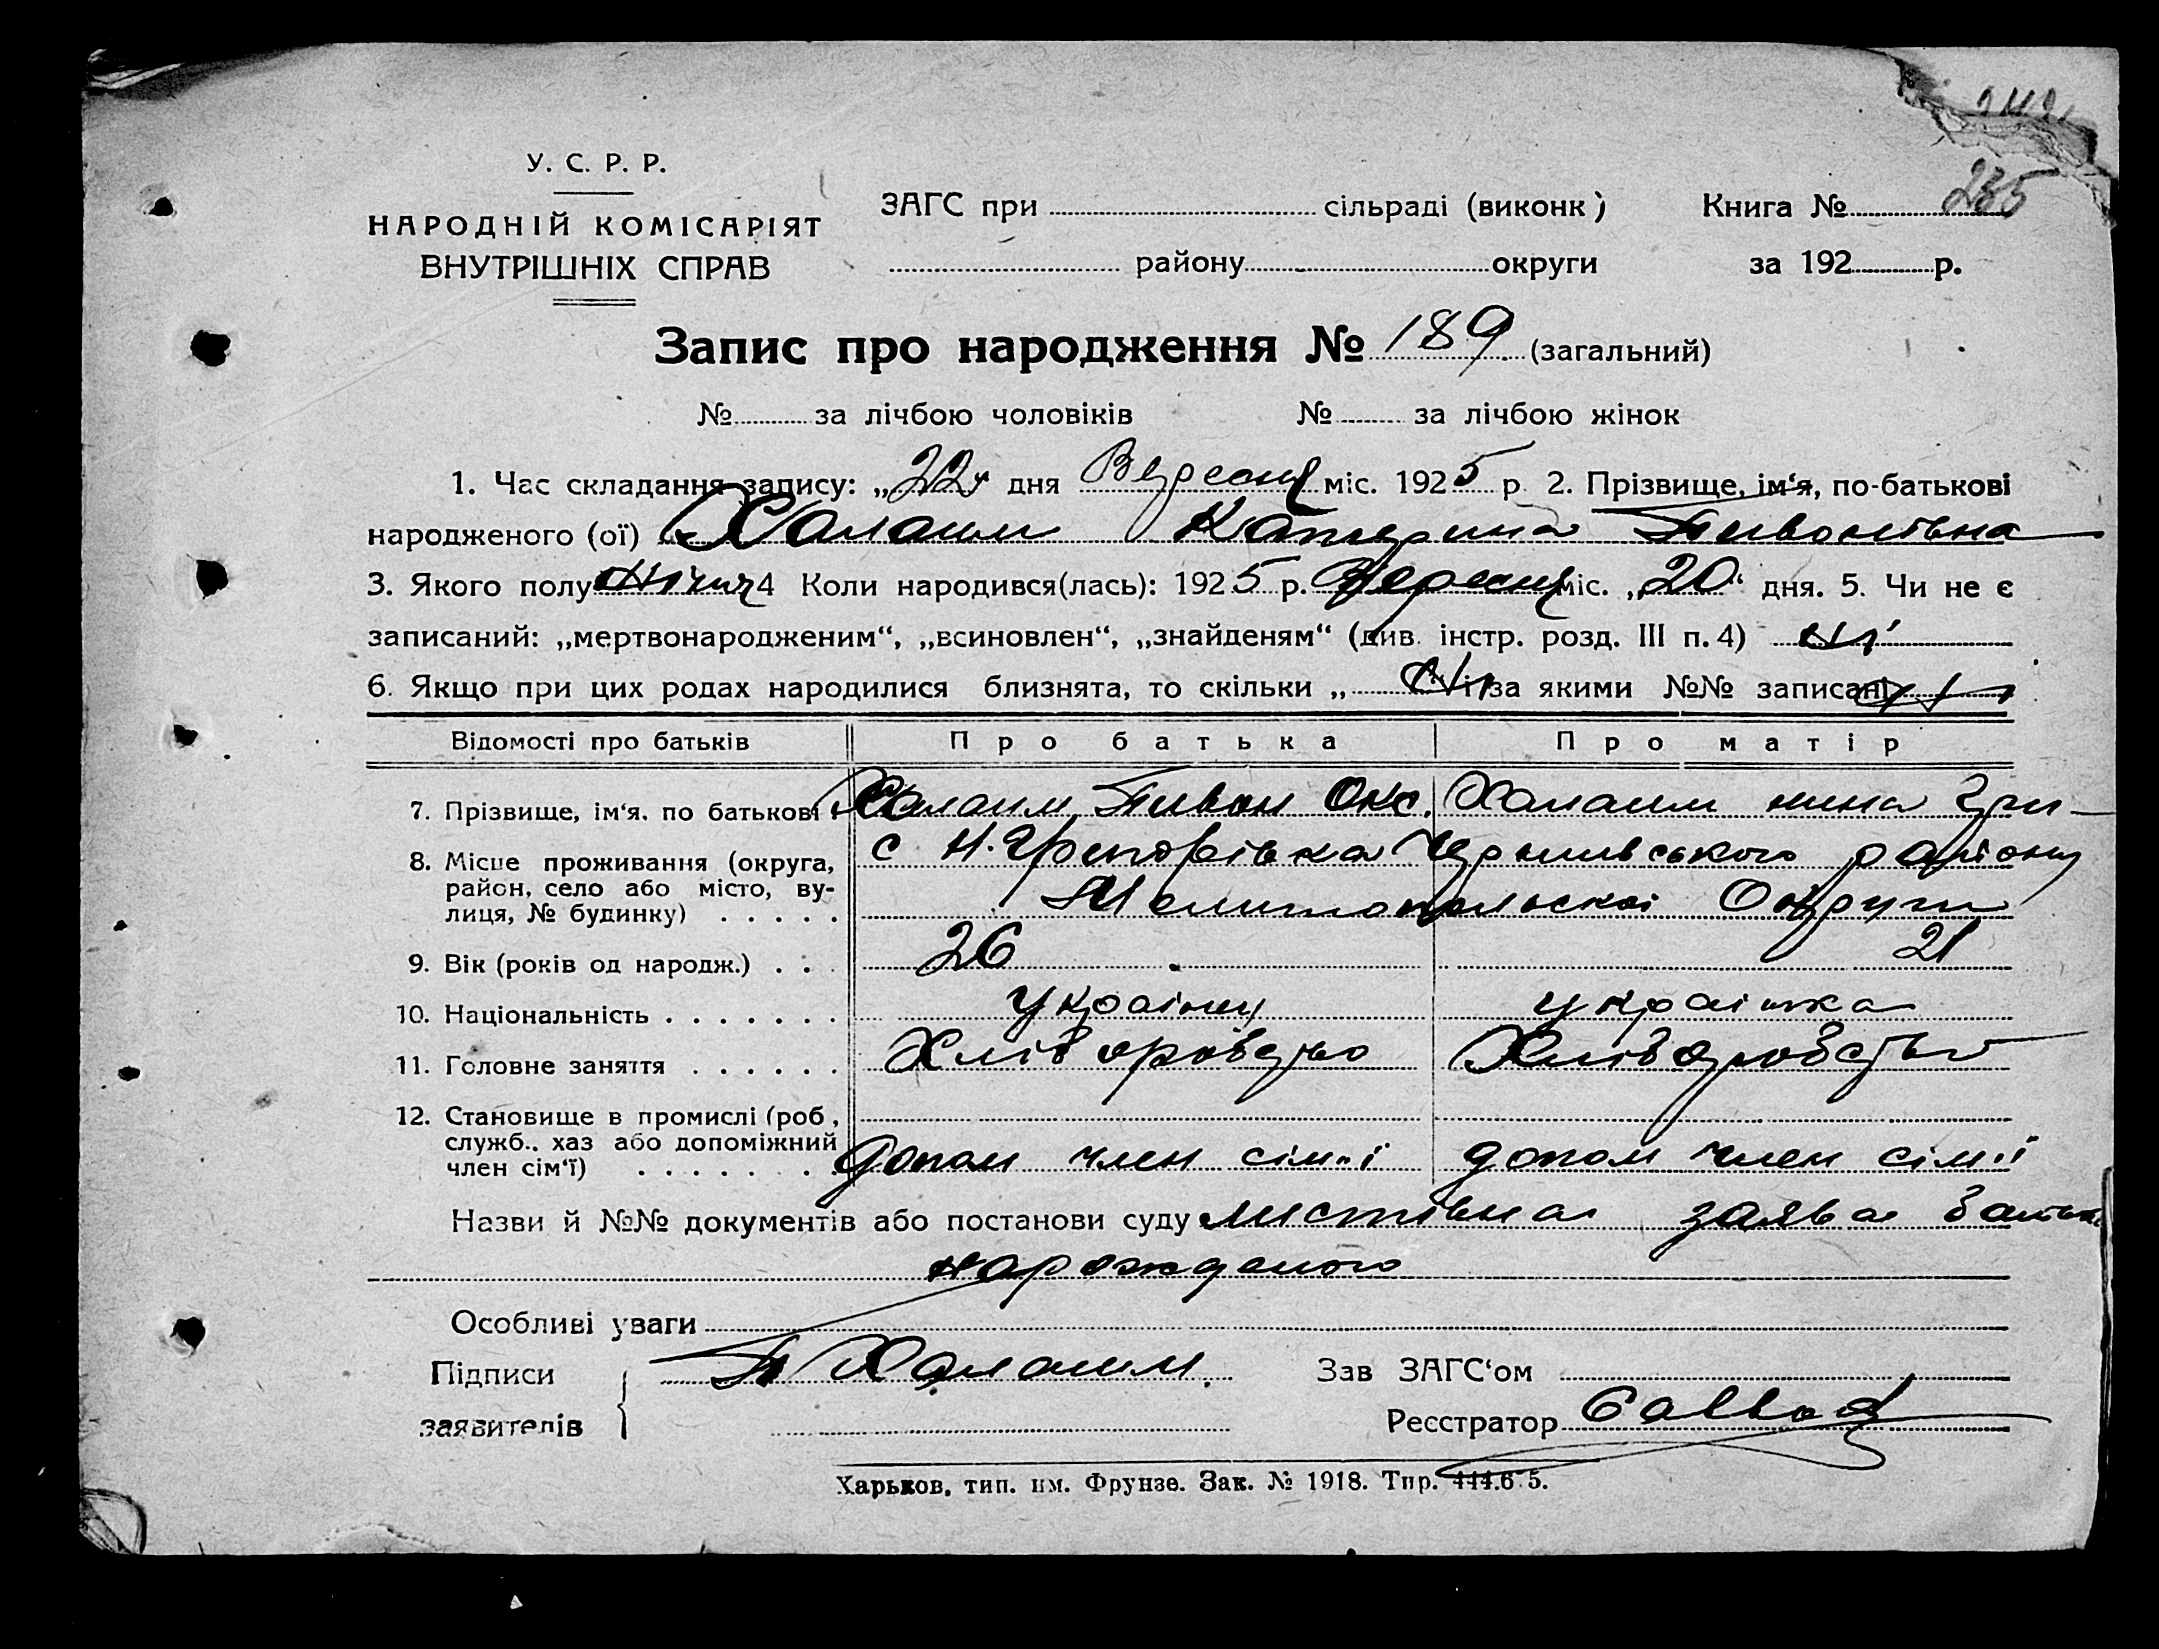 235
У. С. Р. Р.
НАРОДНІЙ КОМІСАРІЯТ
ВНУТРІШНІХ СПРАВ
ЗАГС при сільраді (виконк)
району округи
Книга №
за 192 р.
Запис про народження № 189 (загальний)
№ за лічбою чоловіків № за лічбою жінок
1. Час складання запису: „22" дня Вересня міс. 1925 р. 2. Прізвище, ім'я, по-батькові
народженого (ої) Халаим Катерина Пивонівна
3. Якого полу жіноч 4 Коли народився(лась): 1925 р. Вересня міс. „20" дня. 5. Чи не є
записаний: „мертвонародженим“, „всиновлен“, „знайденям“ (див. інстр. розд. III п. 4) ні
6. Якщо при цих родах народилися близнята, то скільки „ Ні і за якими №№ записані Ні
Відомості про батьків Про батька Про матір
7. Прізвище, ім'я, по батькові Халаим Пивон Окс. Халаим Гри
8. Місце проживання (округа, с Н. Григорівка район, село або місто, вулиця, № будинку) району
Мелитопольскоі Округи
9. Вік (років од народж.) 26 21
10. Національність україниц українка
11. Головне заняття Хліборобство Хліборобство
12. Становище в промислі (роб., служб., хаз або допоміжний член сім'ї) Допом член сім"ї допом член сім"ї
Назви й №№ документів або постанови суду заява батька
нарожденого
Особливі уваги
Підписи заявителів П Халаим.
Зав ЗАГС'ом
Реєстратор
Харьков, тип. им. Фрунзе. Зак. № 1918. Тир.